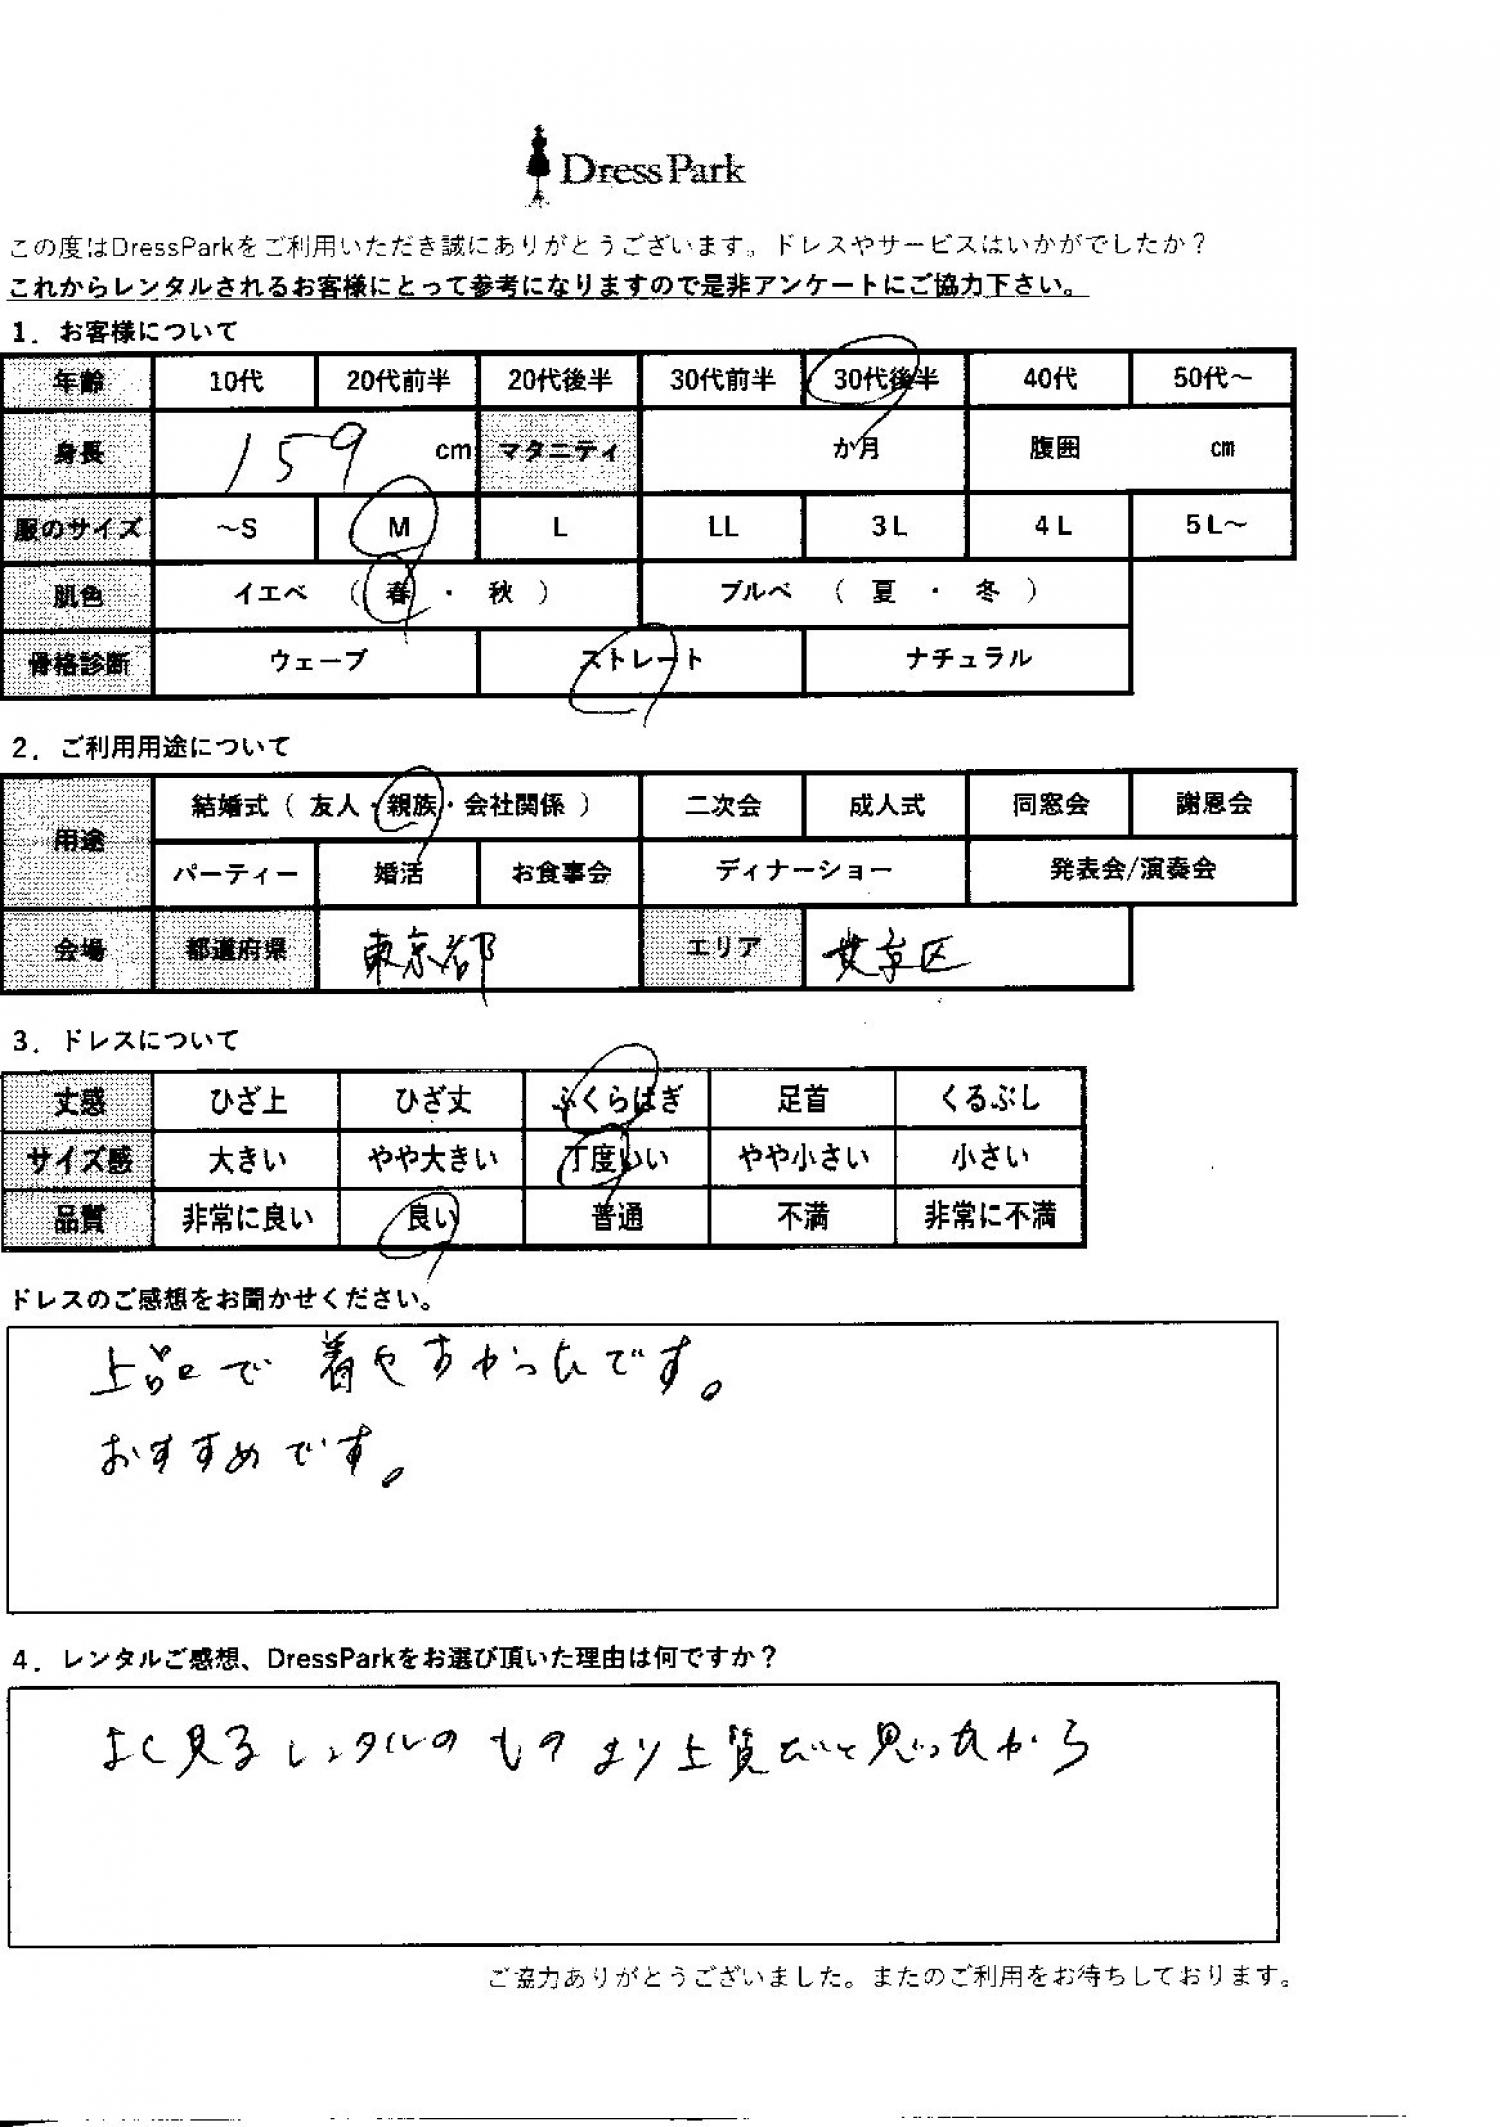 DressPark
この度はDressParkをご利用いただき誠にありがとうございます。ドレスやサービスはいかがでしたか？
これからレンタルされるお客様にとって参考になりますので是非アンケートにご協力下さい。
1．お客様について
年齢 10代 20代前半 20代後半 30代前半 30代後半 40代 50代～
身長 159 cm マタニティ か月 腹囲 cm
服のサイズ ～S M L LL 3L 4L 5L～
肌色 イエベ （ 春 ・ 秋 ） ブルベ （ 夏 ・ 冬 ）
骨格診断 ウェーブ ストレート ナチュラル
2．ご利用用途について
用途 結婚式（ 友人・親族・会社関係 ） 二次会 成人式 同窓会 謝恩会
パーティー 婚活 お食事会 ディナーショー 発表会/演奏会
会場 都道府県 東京都 エリア 文京区
3．ドレスについて
丈感 ひざ上 ひざ丈 ふくらはぎ 足首 くるぶし
サイズ感 大きい やや大きい 丁度いい やや小さい 小さい
品質 非常に良い 良い 普通 不満 非常に不満
ドレスのご感想をお聞かせください。
上品で着やすかったです。
おすすめです。
4．レンタルご感想、DressParkをお選び頂いた理由は何ですか？
よく見るレンタルのものより上質だと思ったから
ご協力ありがとうございました。またのご利用をお待ちしております。